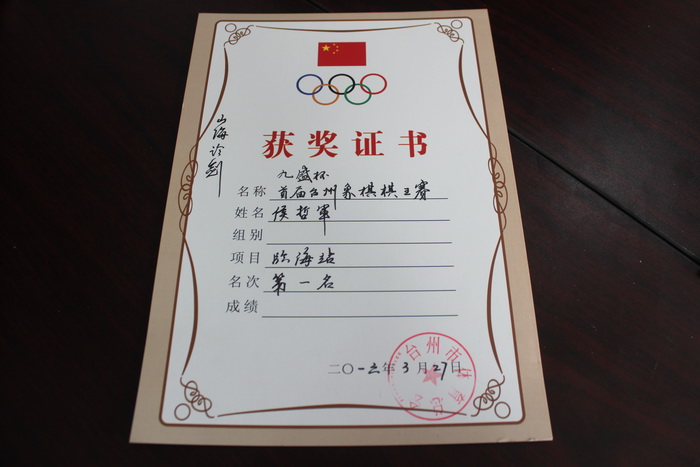 山海论剑
获奖证书
九盛杯
名称 首届台州象棋棋王赛
姓名 侯哲军
组别
项目 临海站
名次 第一名
成绩
二〇一五年3月27日
台州市体育